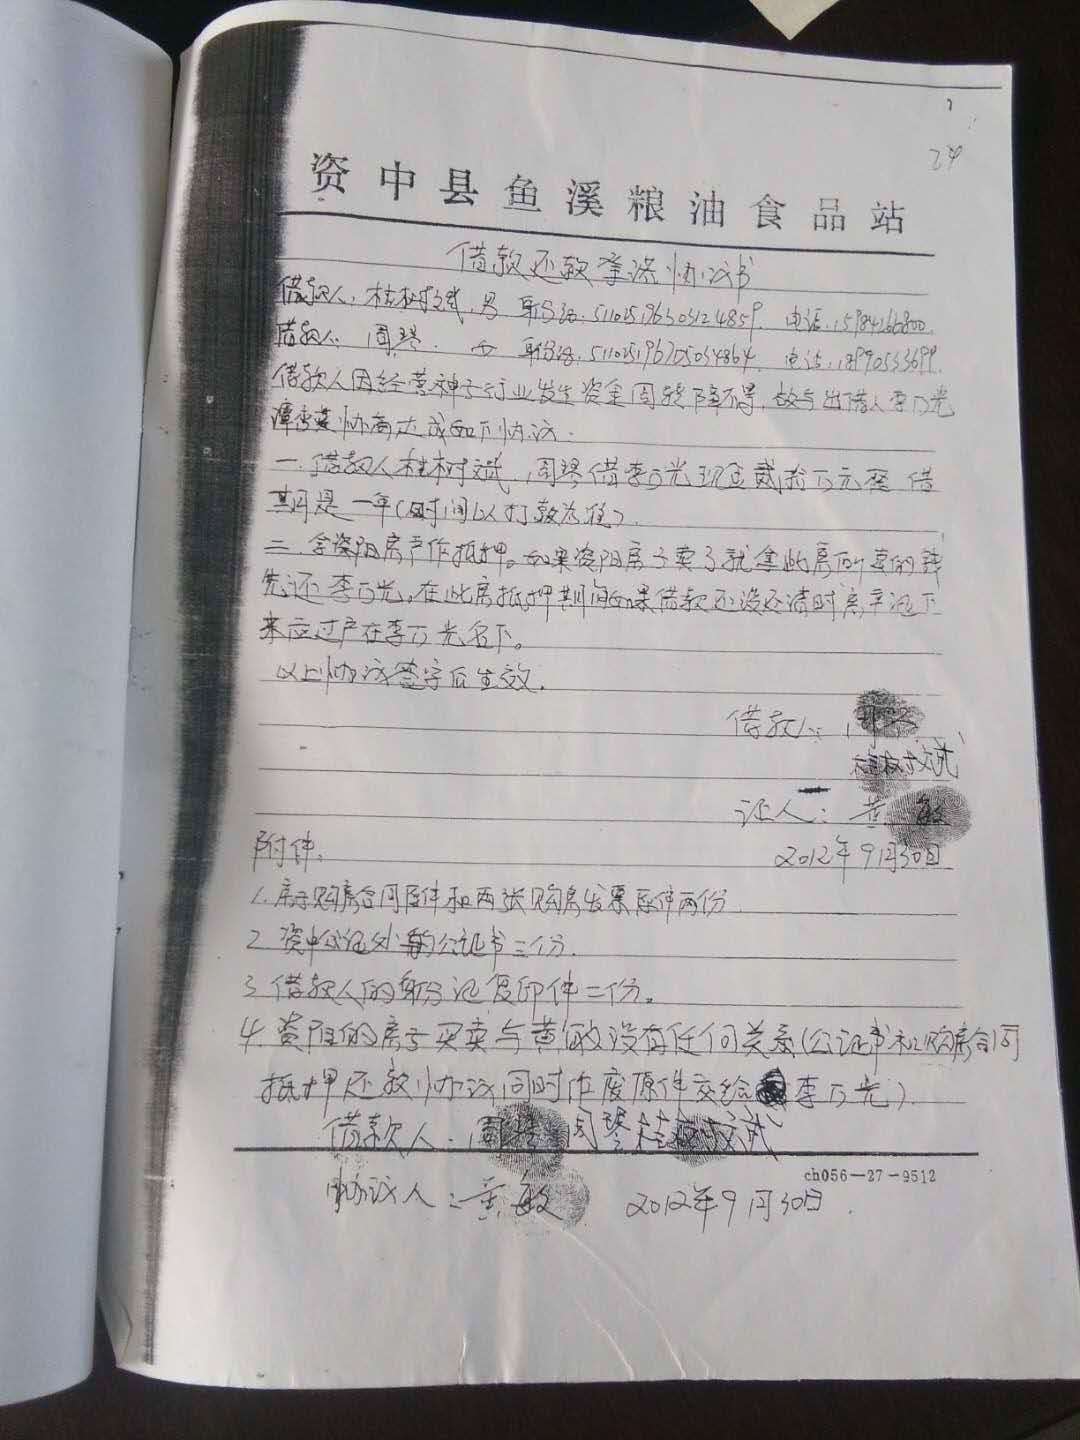 24
资中县鱼溪粮油食品站
借款还款 协议书
借款人: 桂树斌, 男 身份证: 电话: 15984166800
借款人: 周琴. 女 身份证: 电话:
借款人因经营种子行业发生资金周转 故与出借人李乃光
协商达成如下协议:
一. 借款人桂树斌, 周琴借李乃光现金贰拾万元整 借
期是一年(时间以打款为准).
二. 拿资阳房产作抵押。如果资阳房子卖了就拿此房所卖的钱
先还李乃光。在此房抵押期间如果借款还没还清时房产证下
来应过户在李乃光名下。
以上协议签字后生效.
借款人: 周琴
桂树斌
证人: 黄敏
2012年9月30日
附件:
1. 购房合同原件和两张购房发票原件两份
2. 资中公证处 的公证书三份.
3. 借款人的身份证复印件二份。
4. 资阳的房子买卖与黄敏没有任何关系(公证书和购房合同
抵押还款协议同时作废原件交给 李乃光).
借款人: 周琴 桂树斌
ch056-27-9512
协议人: 黄敏 2012年9月30日.